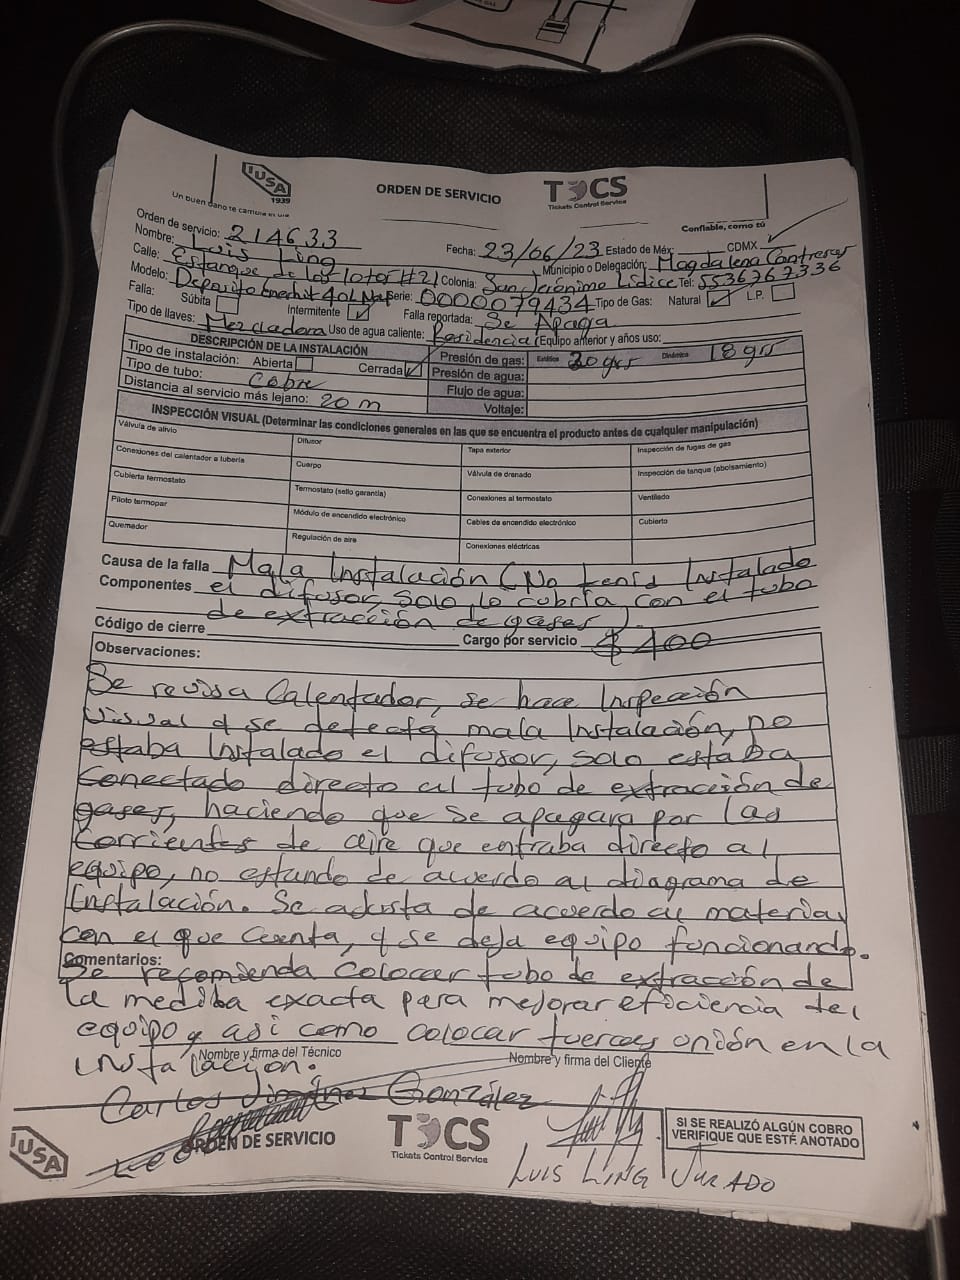 IUSA
1939
ORDEN DE SERVICIO
TOCS
Tickets Control Service
Un buen daño te cambia el día
Confiable, como tú
Orden de servicio: 214633
Fecha: 23/06/23 Estado de Méx: CDMX ✓
Nombre: Luis Ling
Municipio o Delegación: Magdalena Contreras
Calle: Estanque de los lotos #21 Colonia: San Jerónimo Lídice Tel: 5536767336
Modelo: Deposito 40L Nat Serie: 0000079434 Tipo de Gas: Natural ✓ L.P.
Falla: Súbita Intermitente ✓ Falla reportada: Se Apaga
Tipo de llaves: Mezcladora Uso de agua caliente: Residencial Equipo anterior y años uso:
DESCRIPCIÓN DE LA INSTALACIÓN
Tipo de instalación: Abierta Cerrada ✓
Tipo de tubo: Cobre
Distancia al servicio más lejano: 20 m
Presión de gas: Estática 20 grs Dinámica 18 grs
Presión de agua:
Flujo de agua:
Voltaje:
INSPECCIÓN VISUAL (Determinar las condiciones generales en las que se encuentra el producto antes de cualquier manipulación)
Válvula de alivio
Difusor
Tapa exterior
Inspección de fugas de gas
Conexiones del calentador a tubería
Cuerpo
Válvula de drenado
Inspección de tanque (abolsamiento)
Cubierta termostato
Termostato (sello garantía)
Conexiones al termostato
Ventilado
Piloto termopar
Módulo de encendido electrónico
Cables de encendido electrónico
Cubierto
Quemador
Regulación de aire
Conexiones eléctricas
Causa de la falla Mala Instalación (No tenía Instalado
Componentes el difusor, solo lo cubría con el tubo
de extracción de gases).
Código de cierre Cargo por servicio $ 400
Observaciones:
Se revisa Calentador, se hace Inspección
visual y se detecta mala Instalación, no
estaba Instalado el difusor, solo estaba
Conectado directo al tubo de extracción de
gases, haciendo que se apagara por las
Corrientes de aire que entraba directo al
equipo, no estando de acuerdo al diagrama de
Instalación. Se ajusta de acuerdo al material
con el que Cuenta, y se deja equipo funcionando.
Comentarios:
Se recomienda Colocar tubo de extracción de
la medida exacta para mejorar eficiencia del
equipo y así como colocar tuercas unión en la
instalación.
Nombre y firma del Técnico
Nombre y firma del Cliente
Carlos Jiménez González
SI SE REALIZÓ ALGÚN COBRO
VERIFIQUE QUE ESTÉ ANOTADO
IUSA
ORDEN DE SERVICIO
TOCS
Tickets Control Service
LUIS LING JURADO